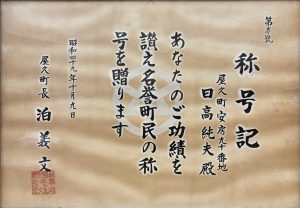 称号記
屋久町安房九十番地
日高純夫殿
あなたのご功績を
讃え名誉町民の称
号を贈ります
昭和四十九年十月九日
屋久町長 泊義文